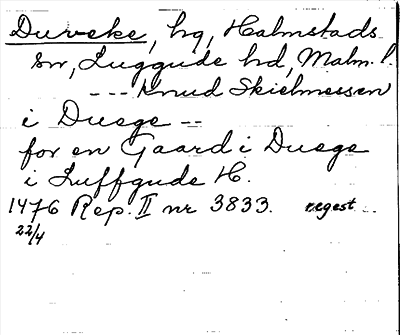 Duveke, hg, Halmstads
sn, Luggude hd, Malm. l.
--- Knud Skielmessen
i Duege --
for en Gaard i Duege
i Luffgude H.
1476 Rep. II nr 3833. regest
22/4